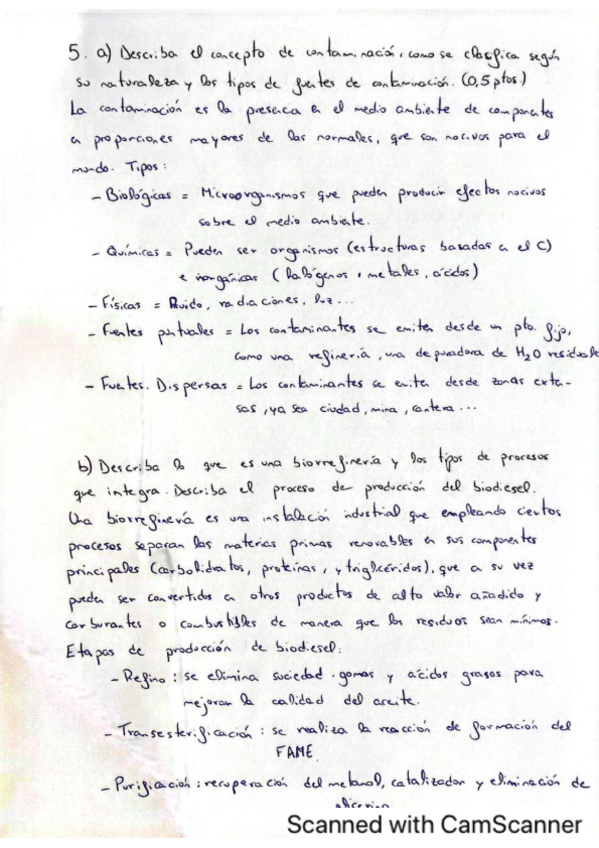 5. a) Describa el concepto de contaminación, como se clasfica según
su naturaleza y los tipos de fuentes de contaminación. (0,5 ptos)
La contaminación es la presencia en el medio ambiente de componentes
en proporciones mayores de las normales, que son nocivos para el
mundo. Tipos:
- Biológicas = Microorganismos que pueden producir efectos nocivos
sobre el medio ambiente.
- Químicas = Pueden ser organismos (estructuras basadas en el C)
e inorgánicas (halógenos, metales, ácidos)
- Físicas = Ruido, radiaciones, luz...
- Fuentes puntuales = Los contaminantes se emiten desde un pto. fijo,
como una refinería, una depuradora de H2O residuale
- Fuentes. Dispersas = Los contaminantes se emiten desde zonas exten-
sas, ya sea ciudad, mina, cantera...
b) Describa lo que es una biorrefinería y los tipos de procesos
que integra. Describa el proceso de producción del biodiesel.
Una biorrefinería es una instalación industrial que empleando ciertos
procesos separan las materias primas renovables en sus componentes
principales (carbohidratos, proteínas, y triglicéridos), que a su vez
pueden ser convertidos en otros productos de alto valor añadido y
carburantes o combustibles de manera que los residuos sean mínimos.
Etapas de producción de biodiesel:
- Refino: se elimina suciedad, gomas y ácidos grasos para
mejorar la calidad del aceite.
- Transesterificación: se realiza la reacción de formación del
FAME.
- Purificación: recuperación del metanol, catalizador y eliminación de
Scanned with CamScanner